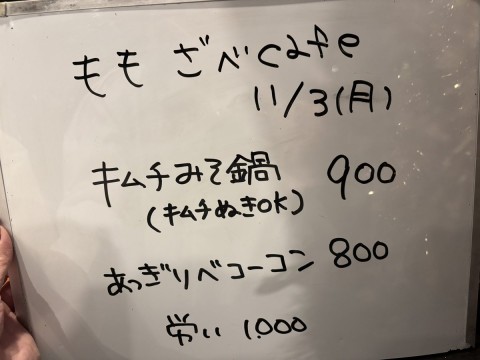 もも ざべcafe
11/3(月)
キムチみそ鍋 900
(キムチぬきOK)
あっぎりベコーコン 800
労い 1.000